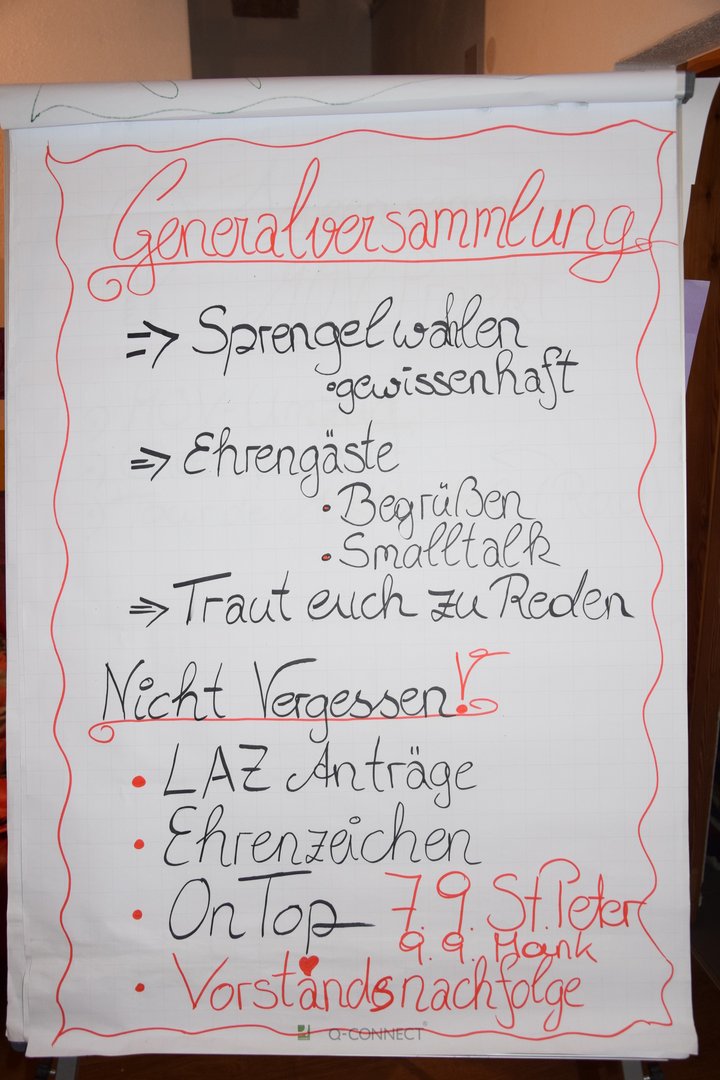 Generalversammlung
=> Sprengelwahlen
• gewissenhaft
=> Ehrengäste
• Begrüßen
• Smalltalk
=> Traut euch zu Reden
Nicht Vergessen!
• LAZ Anträge
• Ehrenzeichen
• OnTop 7.9. St. Peter
9.9. Mank
• Vorståndsnachfolge
Q-CONNECT®